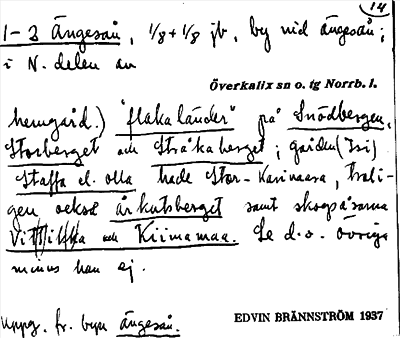 14
1-3 Ängesån, 1/8 + 1/8 jb, by vid ängesån;
i N. delen av
Överkalix sn o. tg Norrb. l.
hemgård.) "flakaländer" på Snödbergen,
Storberget och Stråkaberget; gården (Isi)
Staffa el. olla hade Stor-Karinaara, troli-
gen också årkutsberget samt skogsåsarna
och Kiimamaa. Se d.o. övriga
minns han ej.
Uppg. fr. byn ängesån.
EDVIN BRÄNNSTRÖM 1937